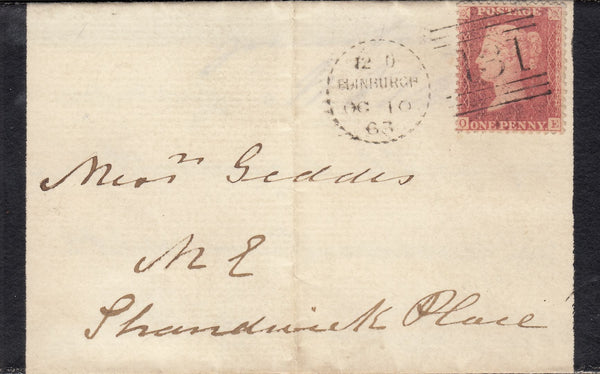 POSTAGE
131
12 O
EDINBURGH
OC 10
63
O ONE PENNY E
Geddes
Shandwick Place